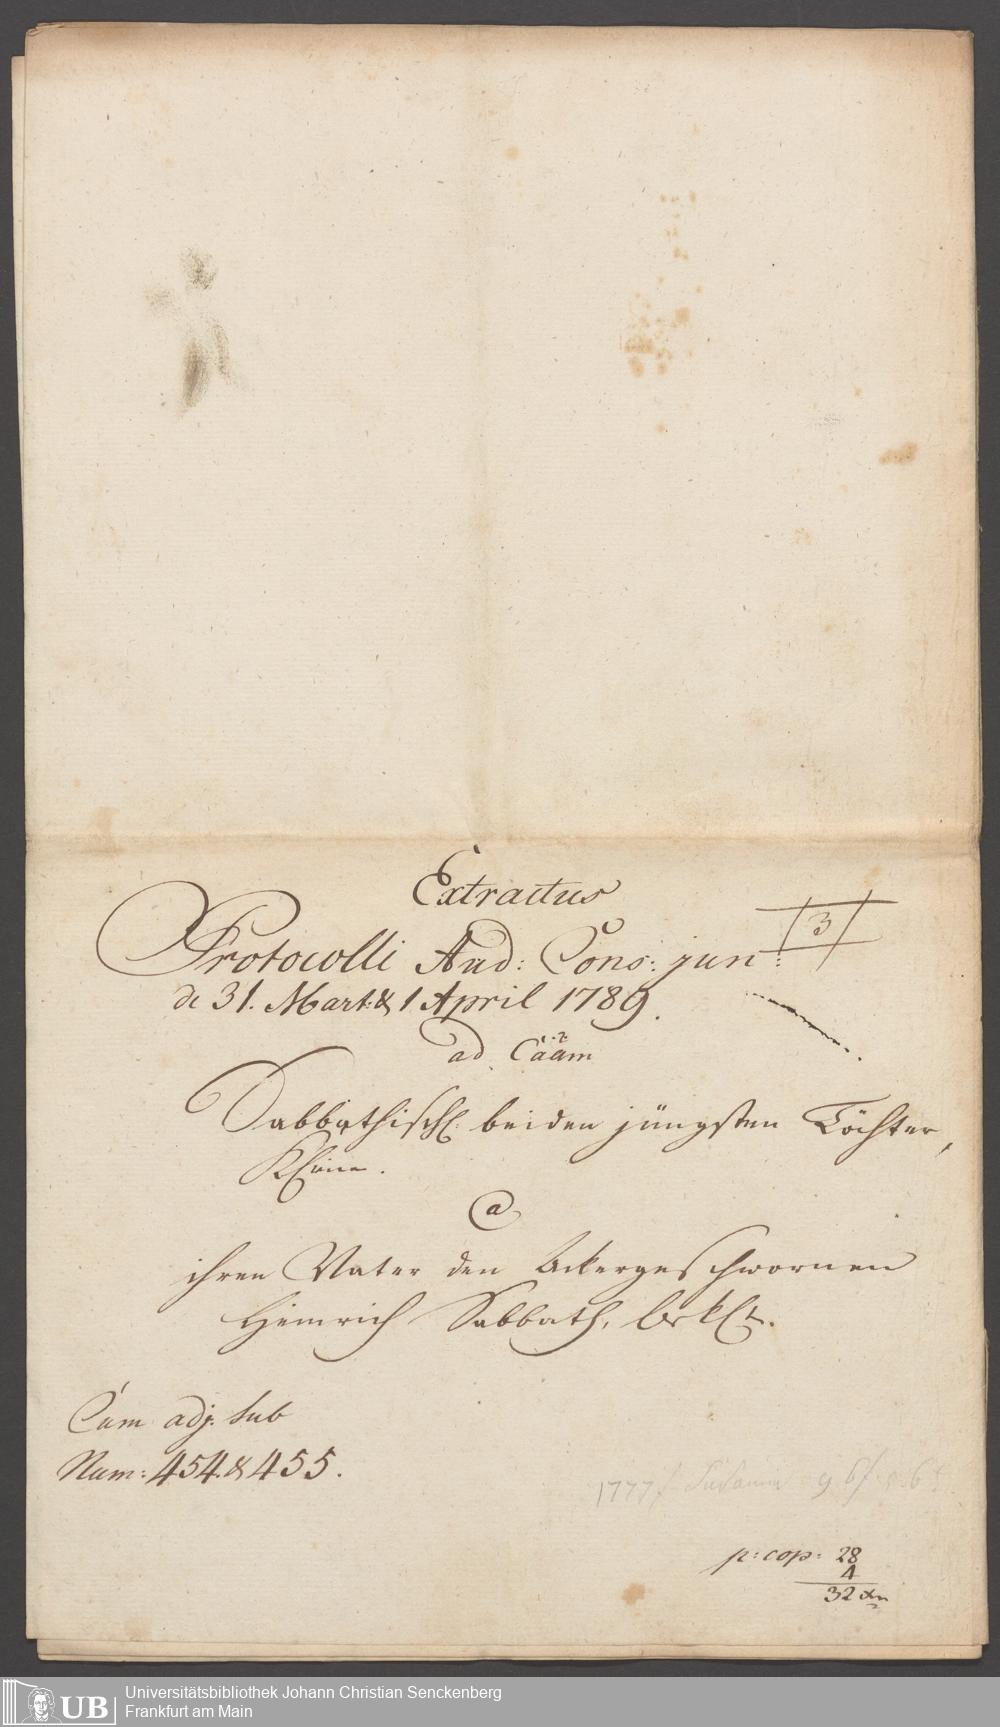 Extractus
3
Protocolli Aud: Cons: jun:
de 31. Mart: & 1 April 1789.
ad Cäam
Sabbathisch: beiden jüngsten Töchter,
Kläri.
@
ihren Vater den Ackergeschwornen
Heinrich Sabbath, Bekl:
Cum adj. sub
Num: 454. & 455.
1777
p: cop: 28
4
32 xr
UB
Universitätsbibliothek Johann Christian Senckenberg
Frankfurt am Main